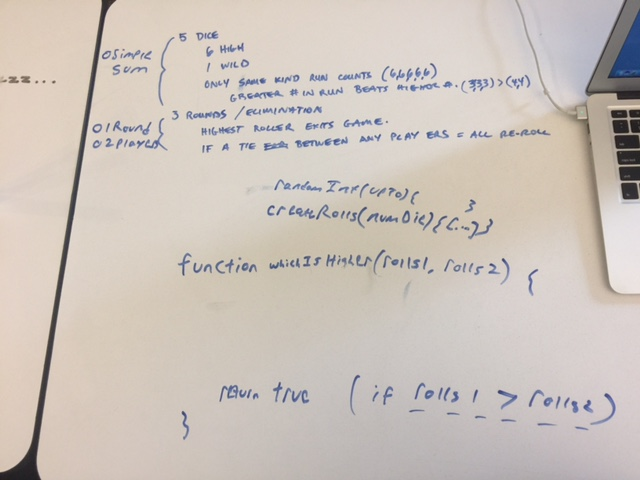 zz...
5 DICE
0 Simple Sum
6 HIGH
1 WILD
ONLY SAME KIND RUN COUNTS (6,6,6,6,6)
GREATER # IN RUN BEATS HIGHER #. (3,3,3) > (4,4)
3 ROUNDS / ELIMINATION
0 1 Round
0 2 Player
HIGHEST ROLLER EXITS GAME.
IF A TIE BETWEEN ANY PLAYERS = ALL RE-ROLL
randomInt(upTo){ }
createRolls(numDie){[...]}
function whichIsHigher(rolls1, rolls2) {
return true (if rolls1 > rolls2)
}